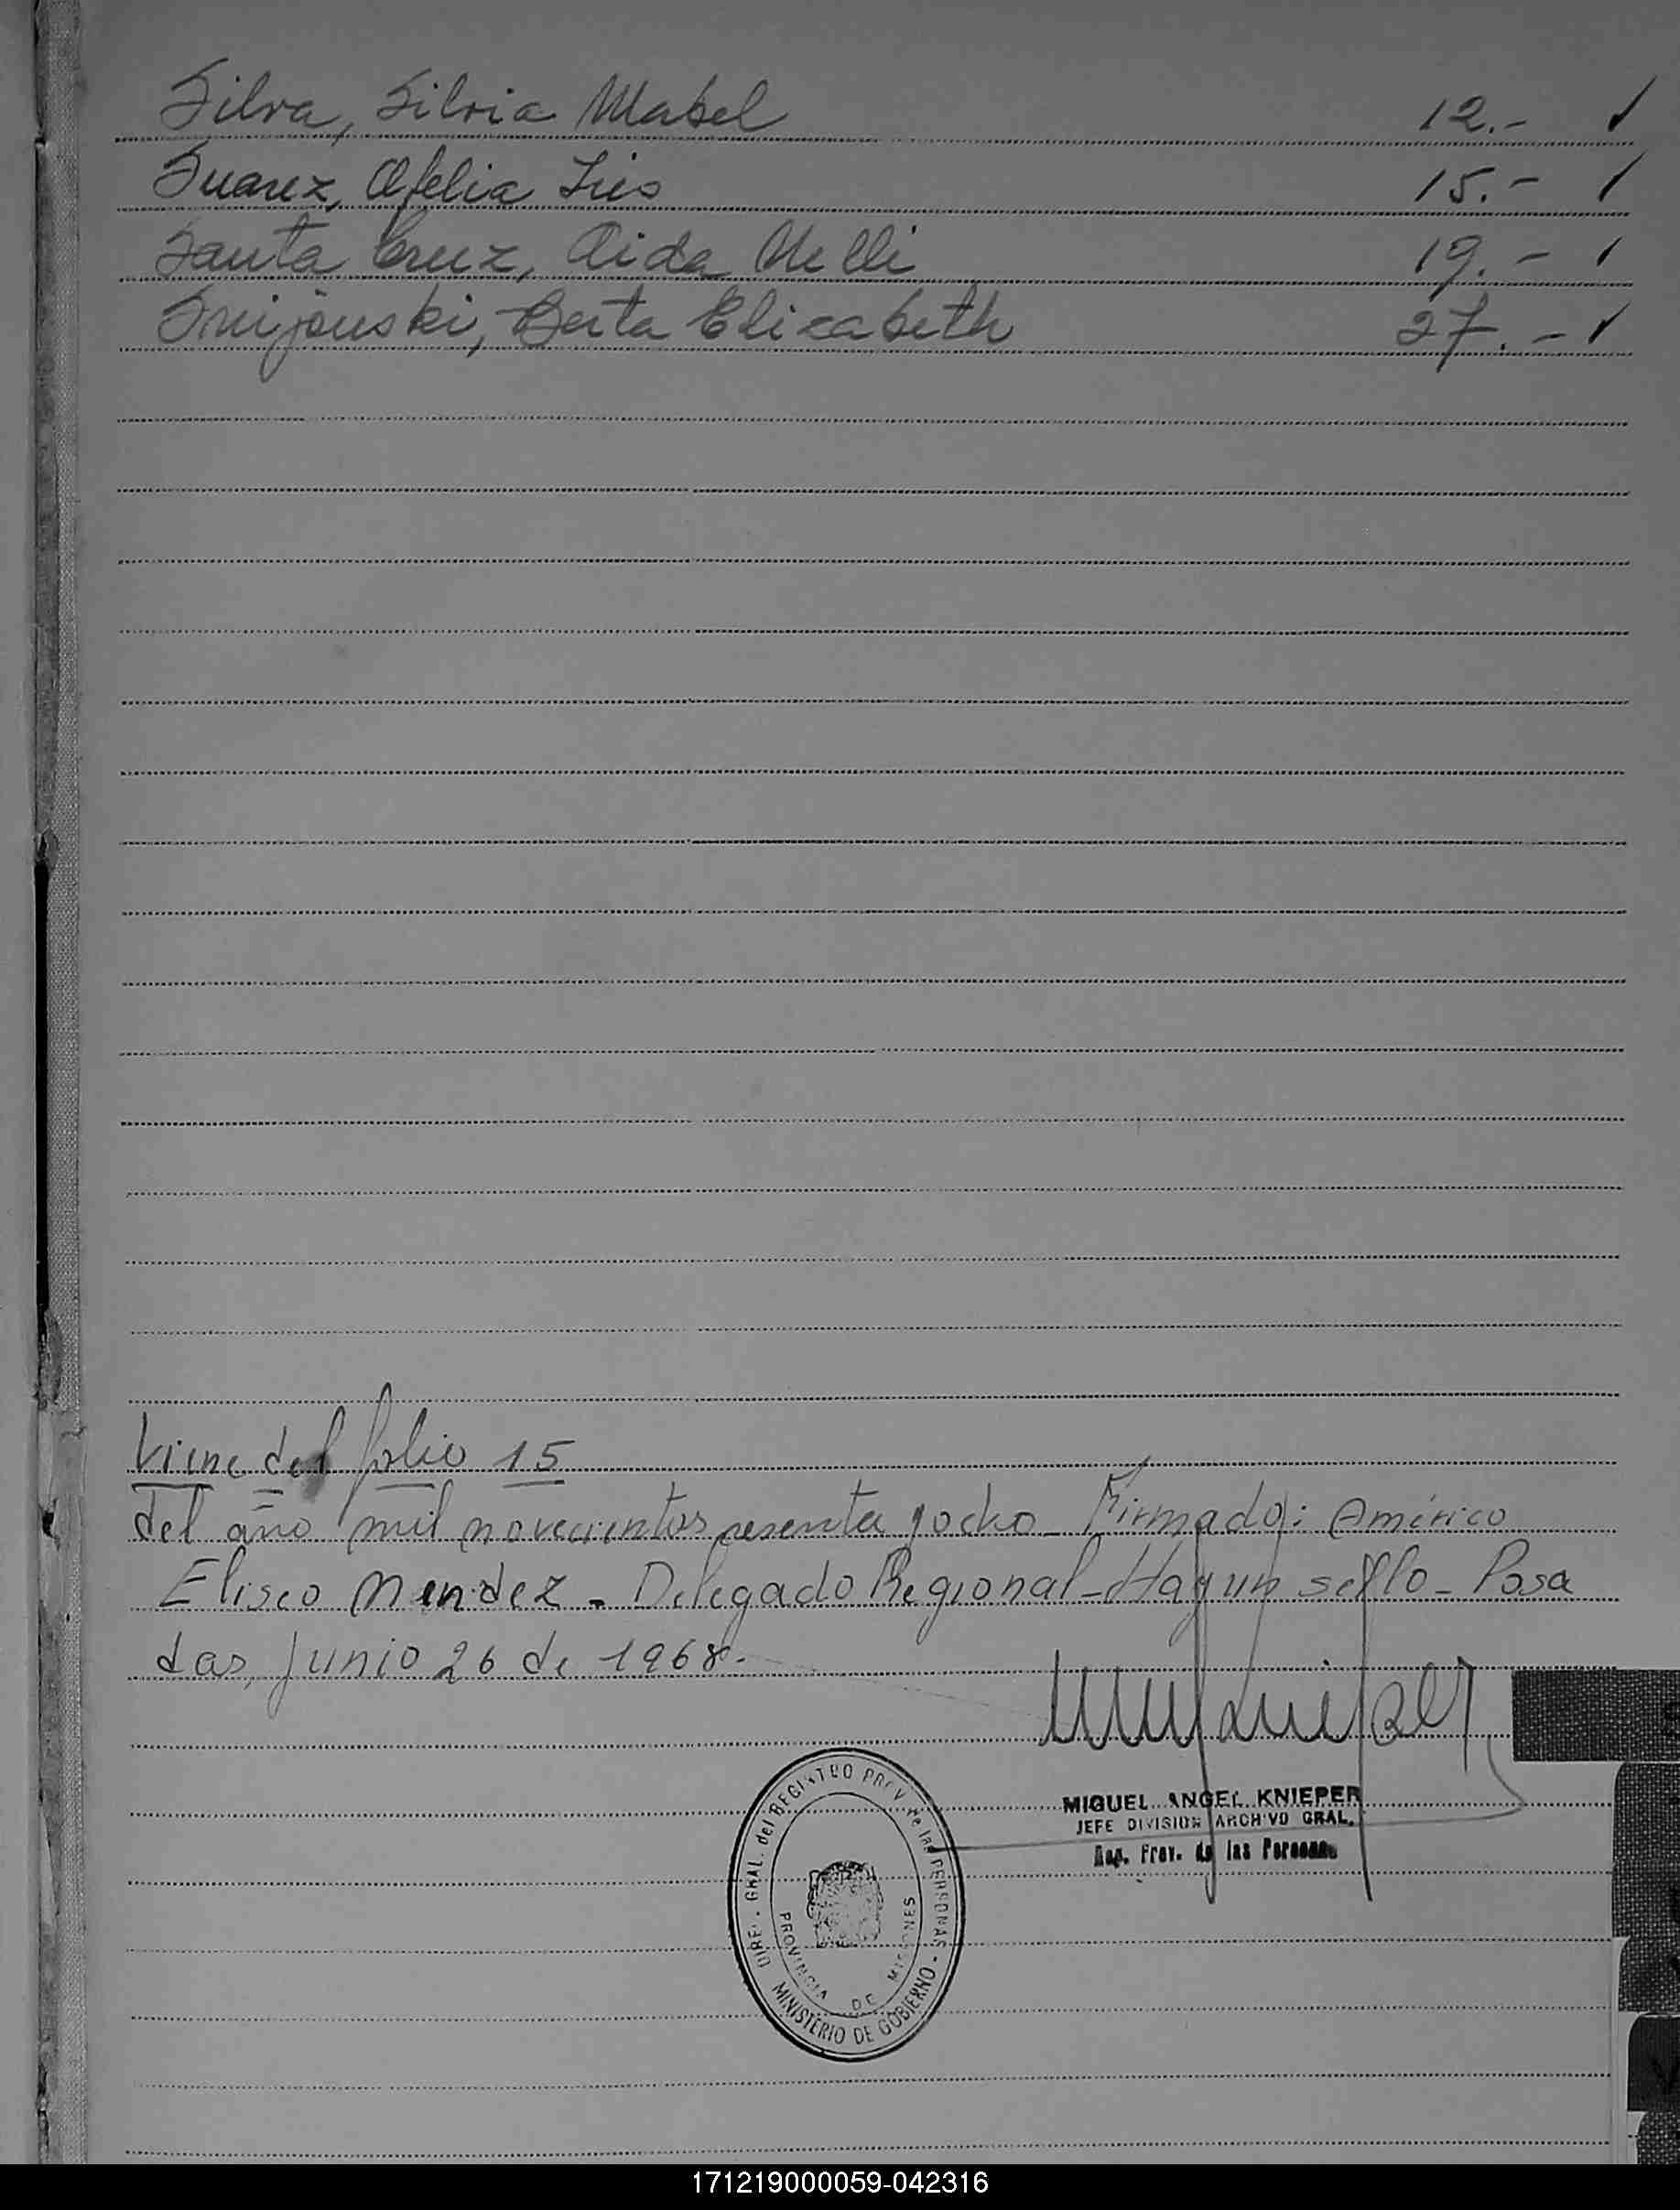 Silva, Silvia Mabel 12.- ✓
Suarez, Ofelia Inés 15.- ✓
Santa Cruz, Aida Nelli 19.- ✓
Berta Elizabeth 27.- ✓
Viene del folio 15
del año mil novecientos sesenta y ocho_ Firmado: Américo
Eliseo Mendez - Delegado Regional - Hay un sello - Posa
das, Junio 26 de 1968.-
MIGUEL ANGEL KNIEPER
JEFE DIVISION ARCHIVO GRAL.
Rep. Prov. de las Personas
DIRE. GRAL. del REGISTRO PROV. de las PERSONAS - MINISTERIO DE GOBIERNO
PROVINCIA DE MISIONES
171219000059-042316